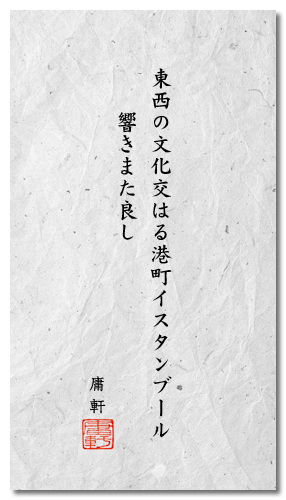 東西の文化交はる港町イスタンブール
響きまた良し
庸軒
庸軒